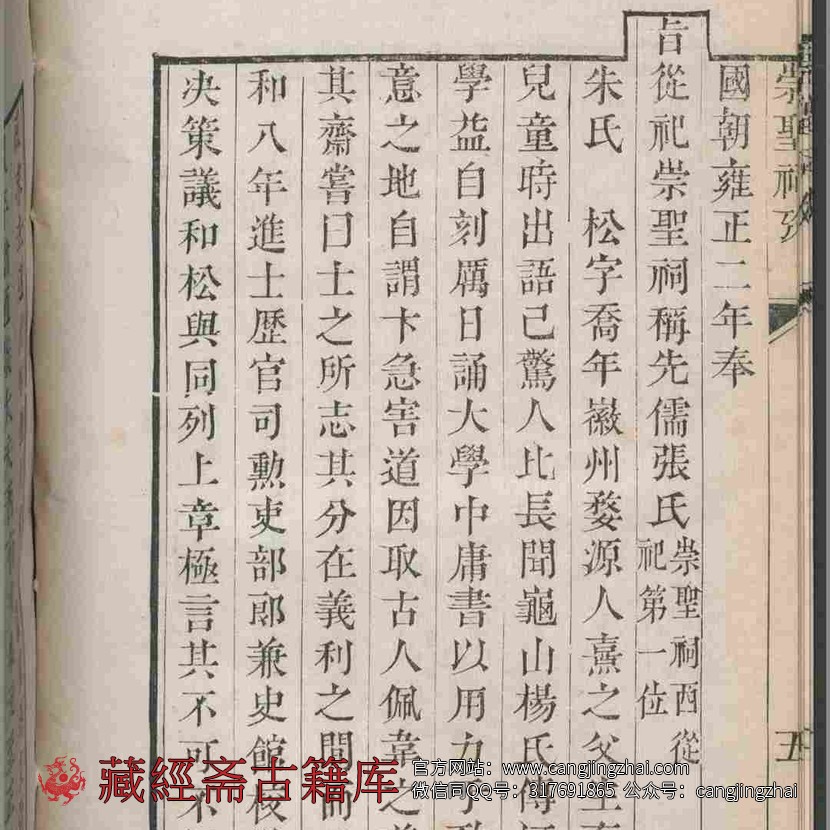 崇聖祠攷
五
國朝雍正二年奉
旨從祀崇聖祠稱先儒張氏崇聖祠西從
祀第一位
朱氏　松字喬年徽州婺源人熹之父生
兒童時出語已驚人比長聞龜山楊氏傳
學益自刻厲日誦大學中庸書以用力于
意之地自謂卞急害道因取古人佩韋之
其齋嘗曰士之所志其分在義利之間
和八年進士歷官司勲吏部郎兼史館校
决策議和松與同列上章極言其不可不
藏經斋古籍库
官方网站：www.cangjingzhai.com
微信同QQ号：317691865 公众号：cangjingzhai